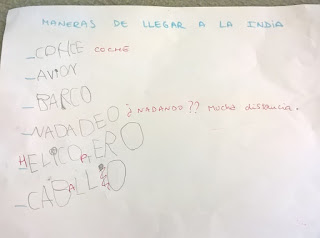 MANERAS DE LLEGAR A LA INDIA
- COHCE COCHE
- AVION
- BARCO
- NADADEO ¿NADANDO?? Mucha distancia.
- HELICOPERO
- CABALLO